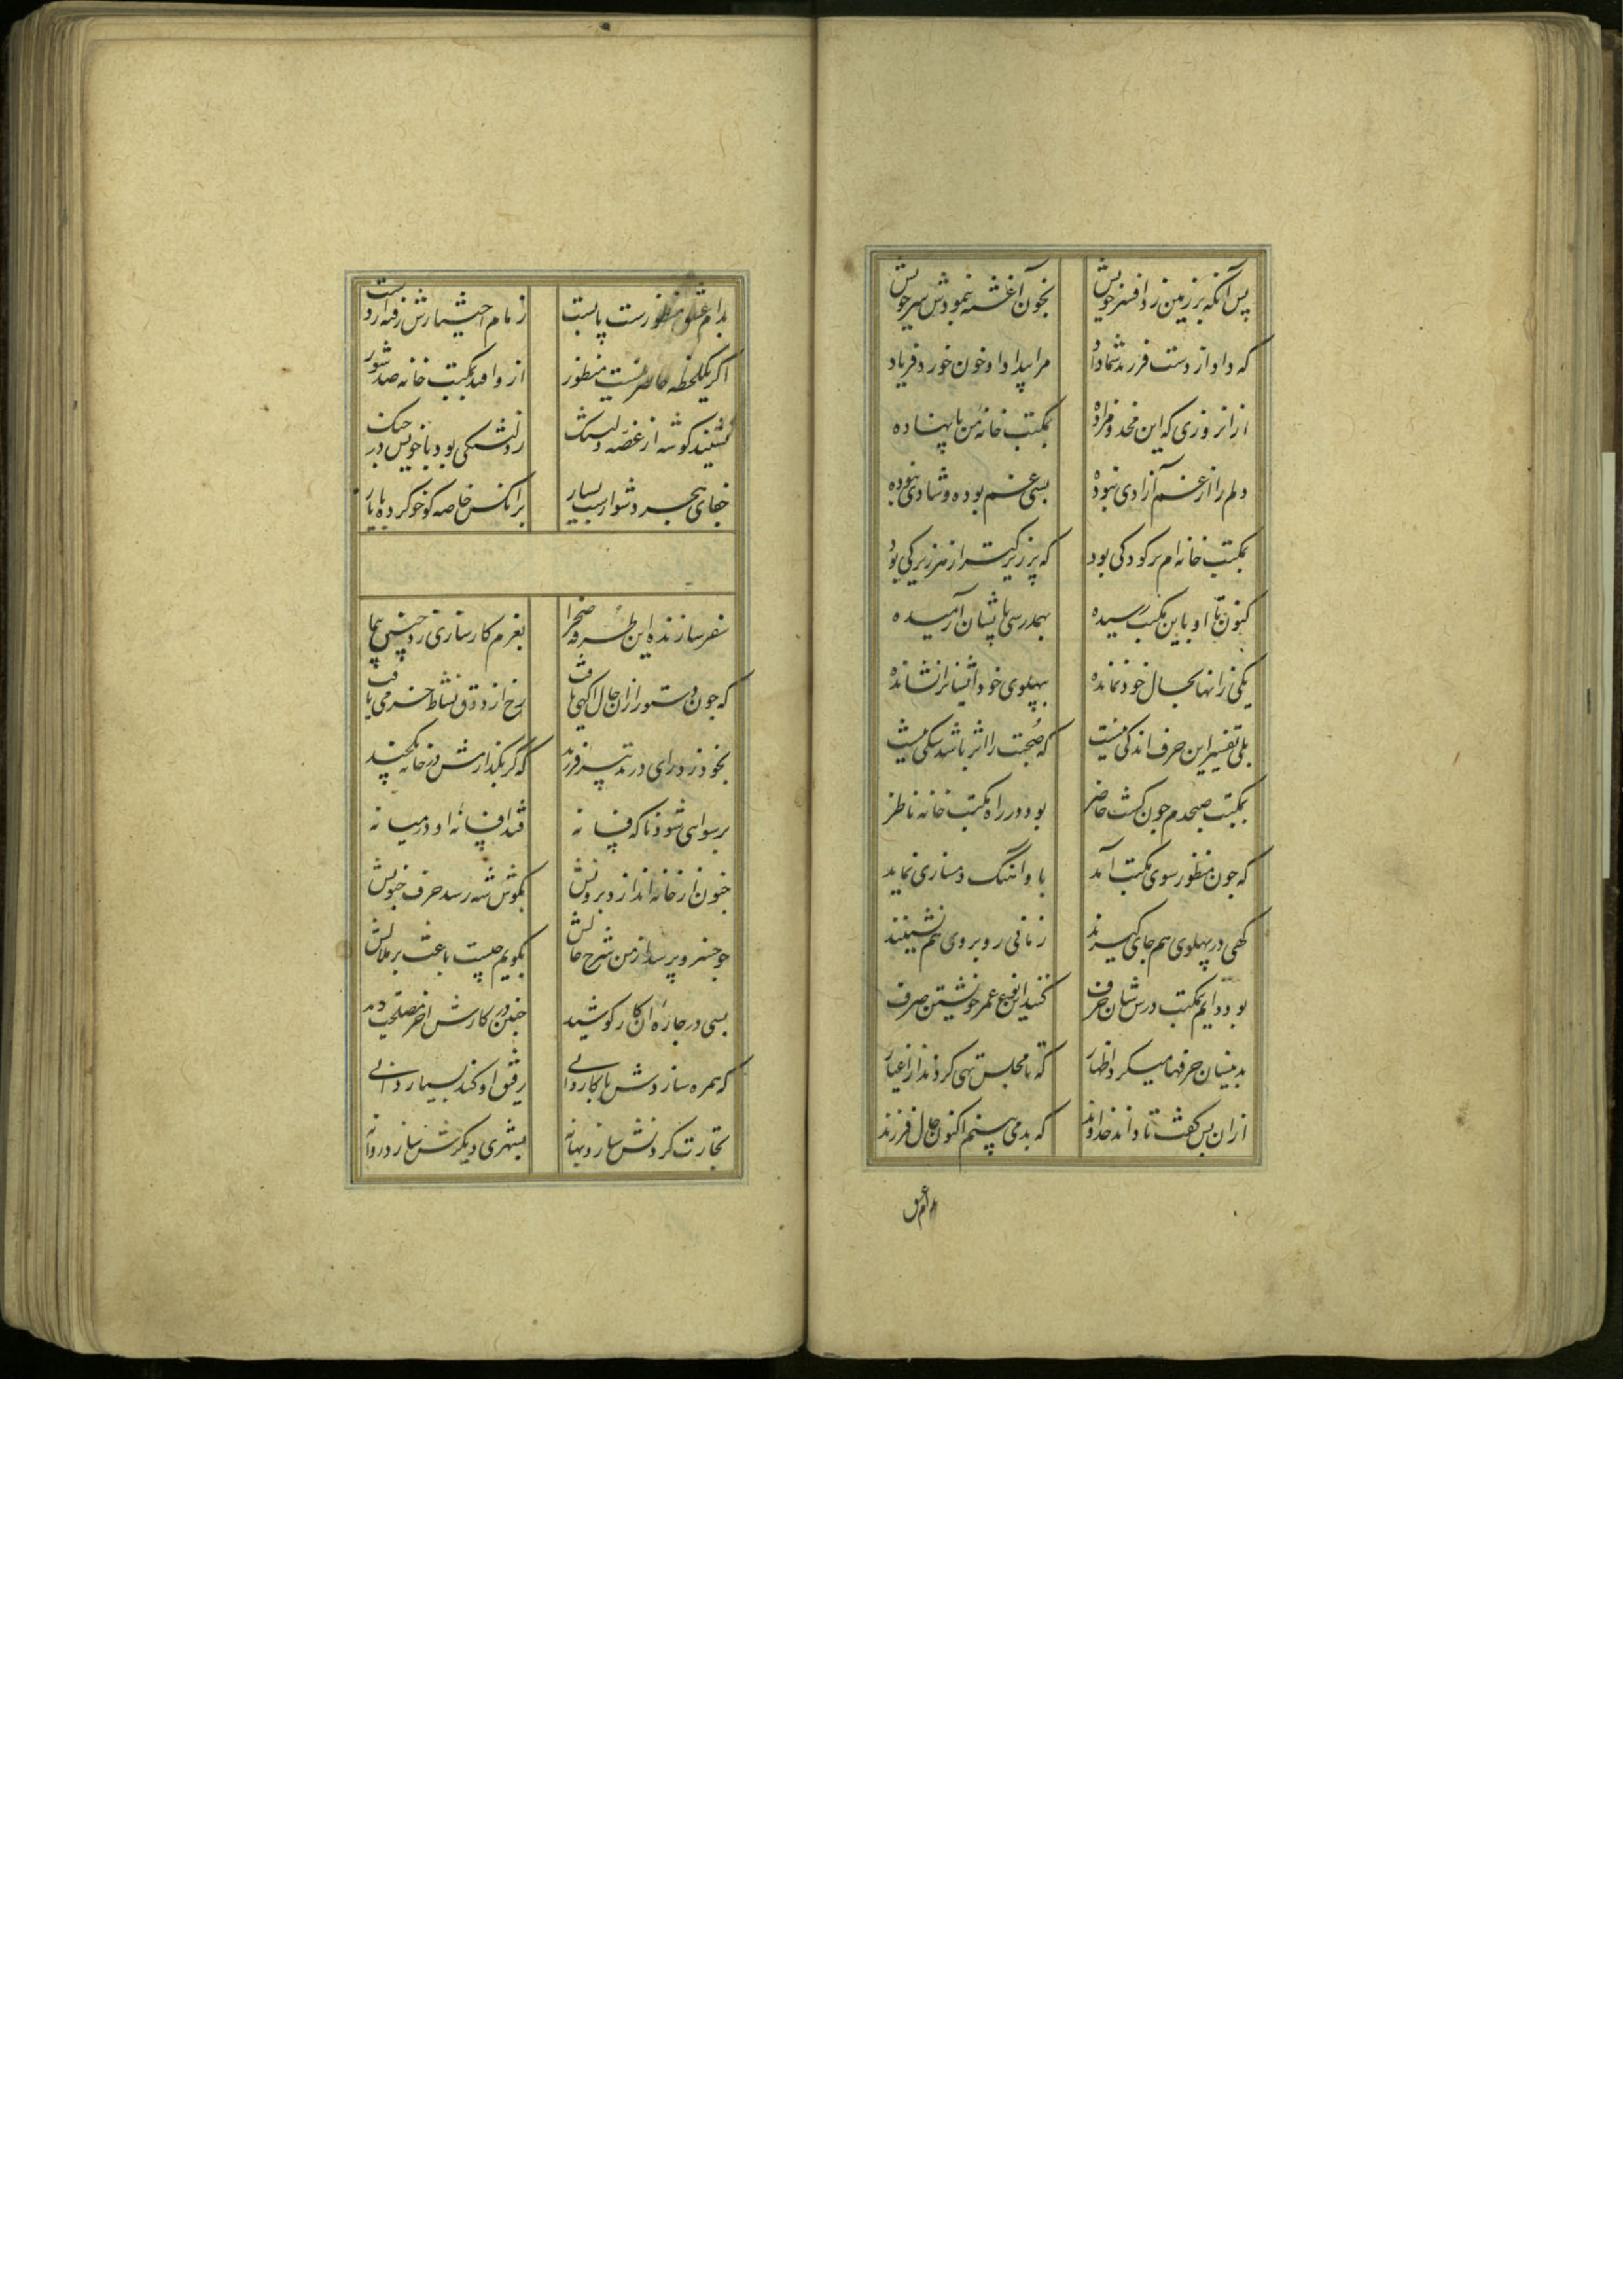 پس آنکه بر زمین زد افسر خویش بخون آغشته نمودش سر خویش
که داد از دست فرزند شما داد مرا بیداد او خون خورد فریاد
از انروزی که این مخدوم زاده بمکتب خانه من پا نهاده
دلم را از غم آزادی نبوده بسی غم بوده و شادی نبوده
بمکتب خانه ام هر کودکی بود که پر زیرکتر از هر زیرکی بود
کنون تا او باین مکتب رسیده بهمدرسی باایشان آرمیده
یکی زانها بحال خود نمانده بپهلوی خود ایشانرا نشانده
بلی تفسیر این حرف اندکی نیست که صحبت را اثر باشد شکی نیست
بمکتب صبحدم چون گشت حاضر بود در راه مکتب خانه ناظر
که چون منظور سوی مکتب آمد با و آهنگ دمسازی نماید
کهی در پهلوی هم جای گیرند زمانی روبروی هم نشینند
بود دایم بمکتب درس شان حرف کنند این نوع عمر خویشتن صرف
بدینسان حرفها میکرد اظهار که تا مجلس تهی کردند از اغیار
از ان پس گفت تا داند خداوند که بد می بینم اکنون حال فرزند
بدام عشق
بدام عشق منظورست پابست زمام اختیارش رفته از دست
اگر یکلحظه حاضر نیست منظور ازو افتد بمکتب خانه صد شور
نشیند گوشه از غصه دلتنگ ز دلتنگی بود با خویش در جنگ
جفای هجر دشوارست بسیار بر انکس خاصه کو خو کرده با یار
سفر سازنده این طرفه صحرا بعزم کارسازی زد چنین پا
که چون دستور از ان حال آگهی یافت رخ از ذوق نشاط خرمی تافت
بخود زد رای در تدبیر فرزند که گر بگذارمش در خانه یکچند
برسوایی شود ناگه فسانه فتد افسانه او در میانه
جنون از خانه اندازد برونش بگوش شه رسد حرف جنونش
چو خسرو پرسد از من شرح حالش بگویم چیست باعث بر ملالش
بسی در چاره آن کار کوشید چنین در کارش آخر مصلحت دید
که همره سازدش با کاروانی رفیق او کند بسیار دانی
تجارت کردنش سازد بهانه بشهری دیگرش سازد روانه